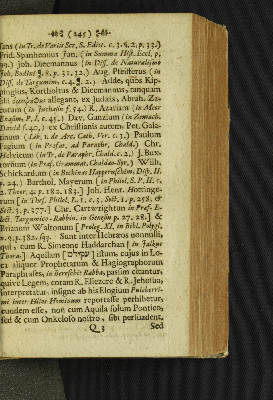 (245)
sans (in Tr. de Variis Scr. S. Edit. c. 3. 6. 2. p. 13.)
Frid. Spanhemius Jun. (in Summa Hist. Eccl. p.
99.) Joh. Diecmannus (in Diss. de Naturalismo
Joh. Bodini §. 8. p. 31. 32.) Aug. Pfeifferus (in
Diss. de Targumim, c. 4. §. 2.) Adde, quos Kip-
pingius, Kortholtus & Diecmannus, tanquam
allegant, ex Judæis, Abrah. Za-
cutum (in Juchasin f. 54.) R. Azariam (in Meor
Enajim, P. I. c. 45.) Dav. Ganzium (in Zemach
David f. 40.) ex Christianis autem, Pet. Gala-
tinum (Lib. 1. de Arc. Cath. Ver. c. 3.) Paulum
Fagium (in Præfat. ad Paraphr. Chald.) Chr.
Helvicum (in Tr. de Paraphr. Chald. c. 2.) J. Bux-
torfium (in Præf. Grammat. Chaldæo-Syr.) Wilh.
Schickardum (in Bechinat Happeruschim, Disp. II.
p. 24.) Barthol. Mayerum (in Philol. S. P. II. c.
2. Theor. 4. p. 182. 183.) Joh. Henr. Hottinge-
rum [in Thes. Philol. L. 1. c. 3. Sect. 1. p. 258. &
Sect. 5. p. 377.] Chr. Cartwrightum in Præf. E-
lect. Targumico-Rabbin. in Genesin p. 27. 28.] &
Brianum Waltonum [Proleg. XI. in Bibl. Polygl.
n. 9. p. 382. sq. Sunt inter Hebræos nonnulli
qui, cum R. Simeone Haddarchan [in Jalkut
Thora.] Aquilam [עקילס] istum, cujus in Lo-
ca aliquot Prophetarum & Hagiographorum
Paraphrases, in Bereschit Rabba, passim citantur,
quive Legem, coram R. Eliezere & R. Jehosua,
interpretatur, insigne ab his Elogium Pulcherri-
me inter Filios Hominum reportasse perhibetur,
eundem esse, non cum Aquila solum Pontico,
sed & cum Onkeloso nostro, sibi persuadent,
Q 3
Sed